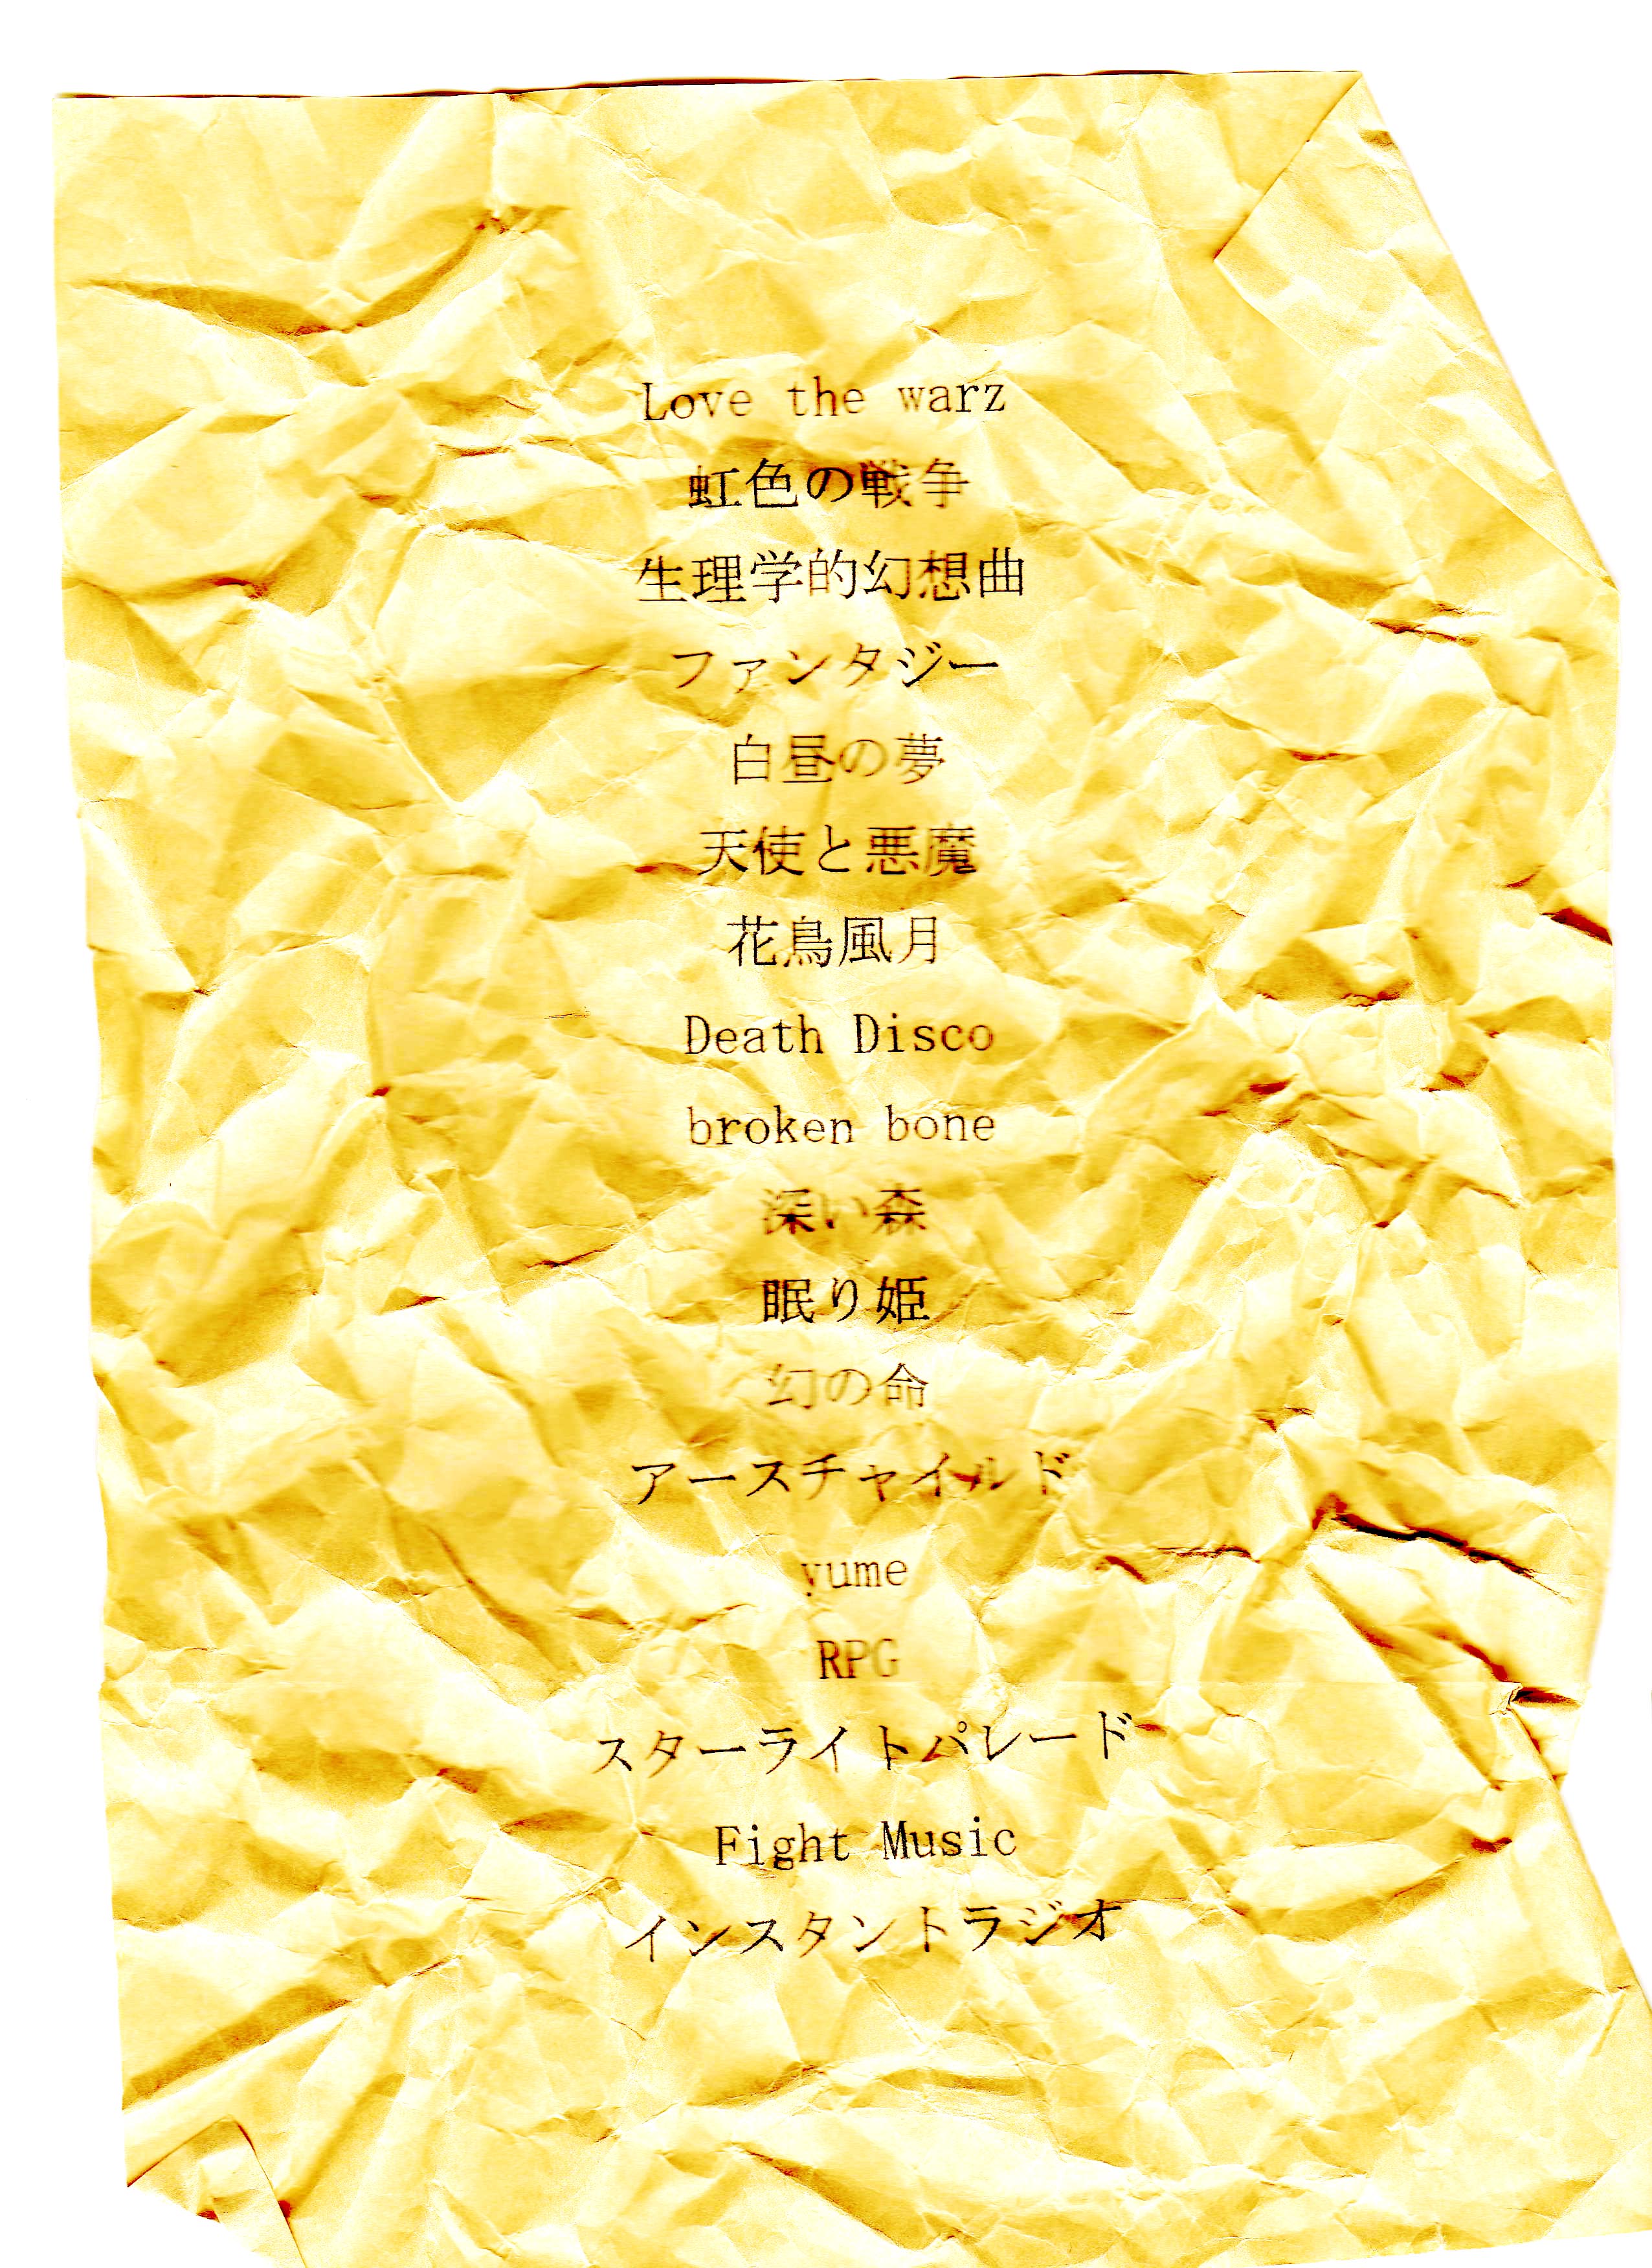 Love the warz
虹色の戦争
生理学的幻想曲
ファンタジー
白昼の夢
天使と悪魔
花鳥風月
Death Disco
broken bone
深い森
眠り姫
幻の命
アースチャイルド
yume
RPG
スターライトパレード
Fight Music
インスタントラジオ